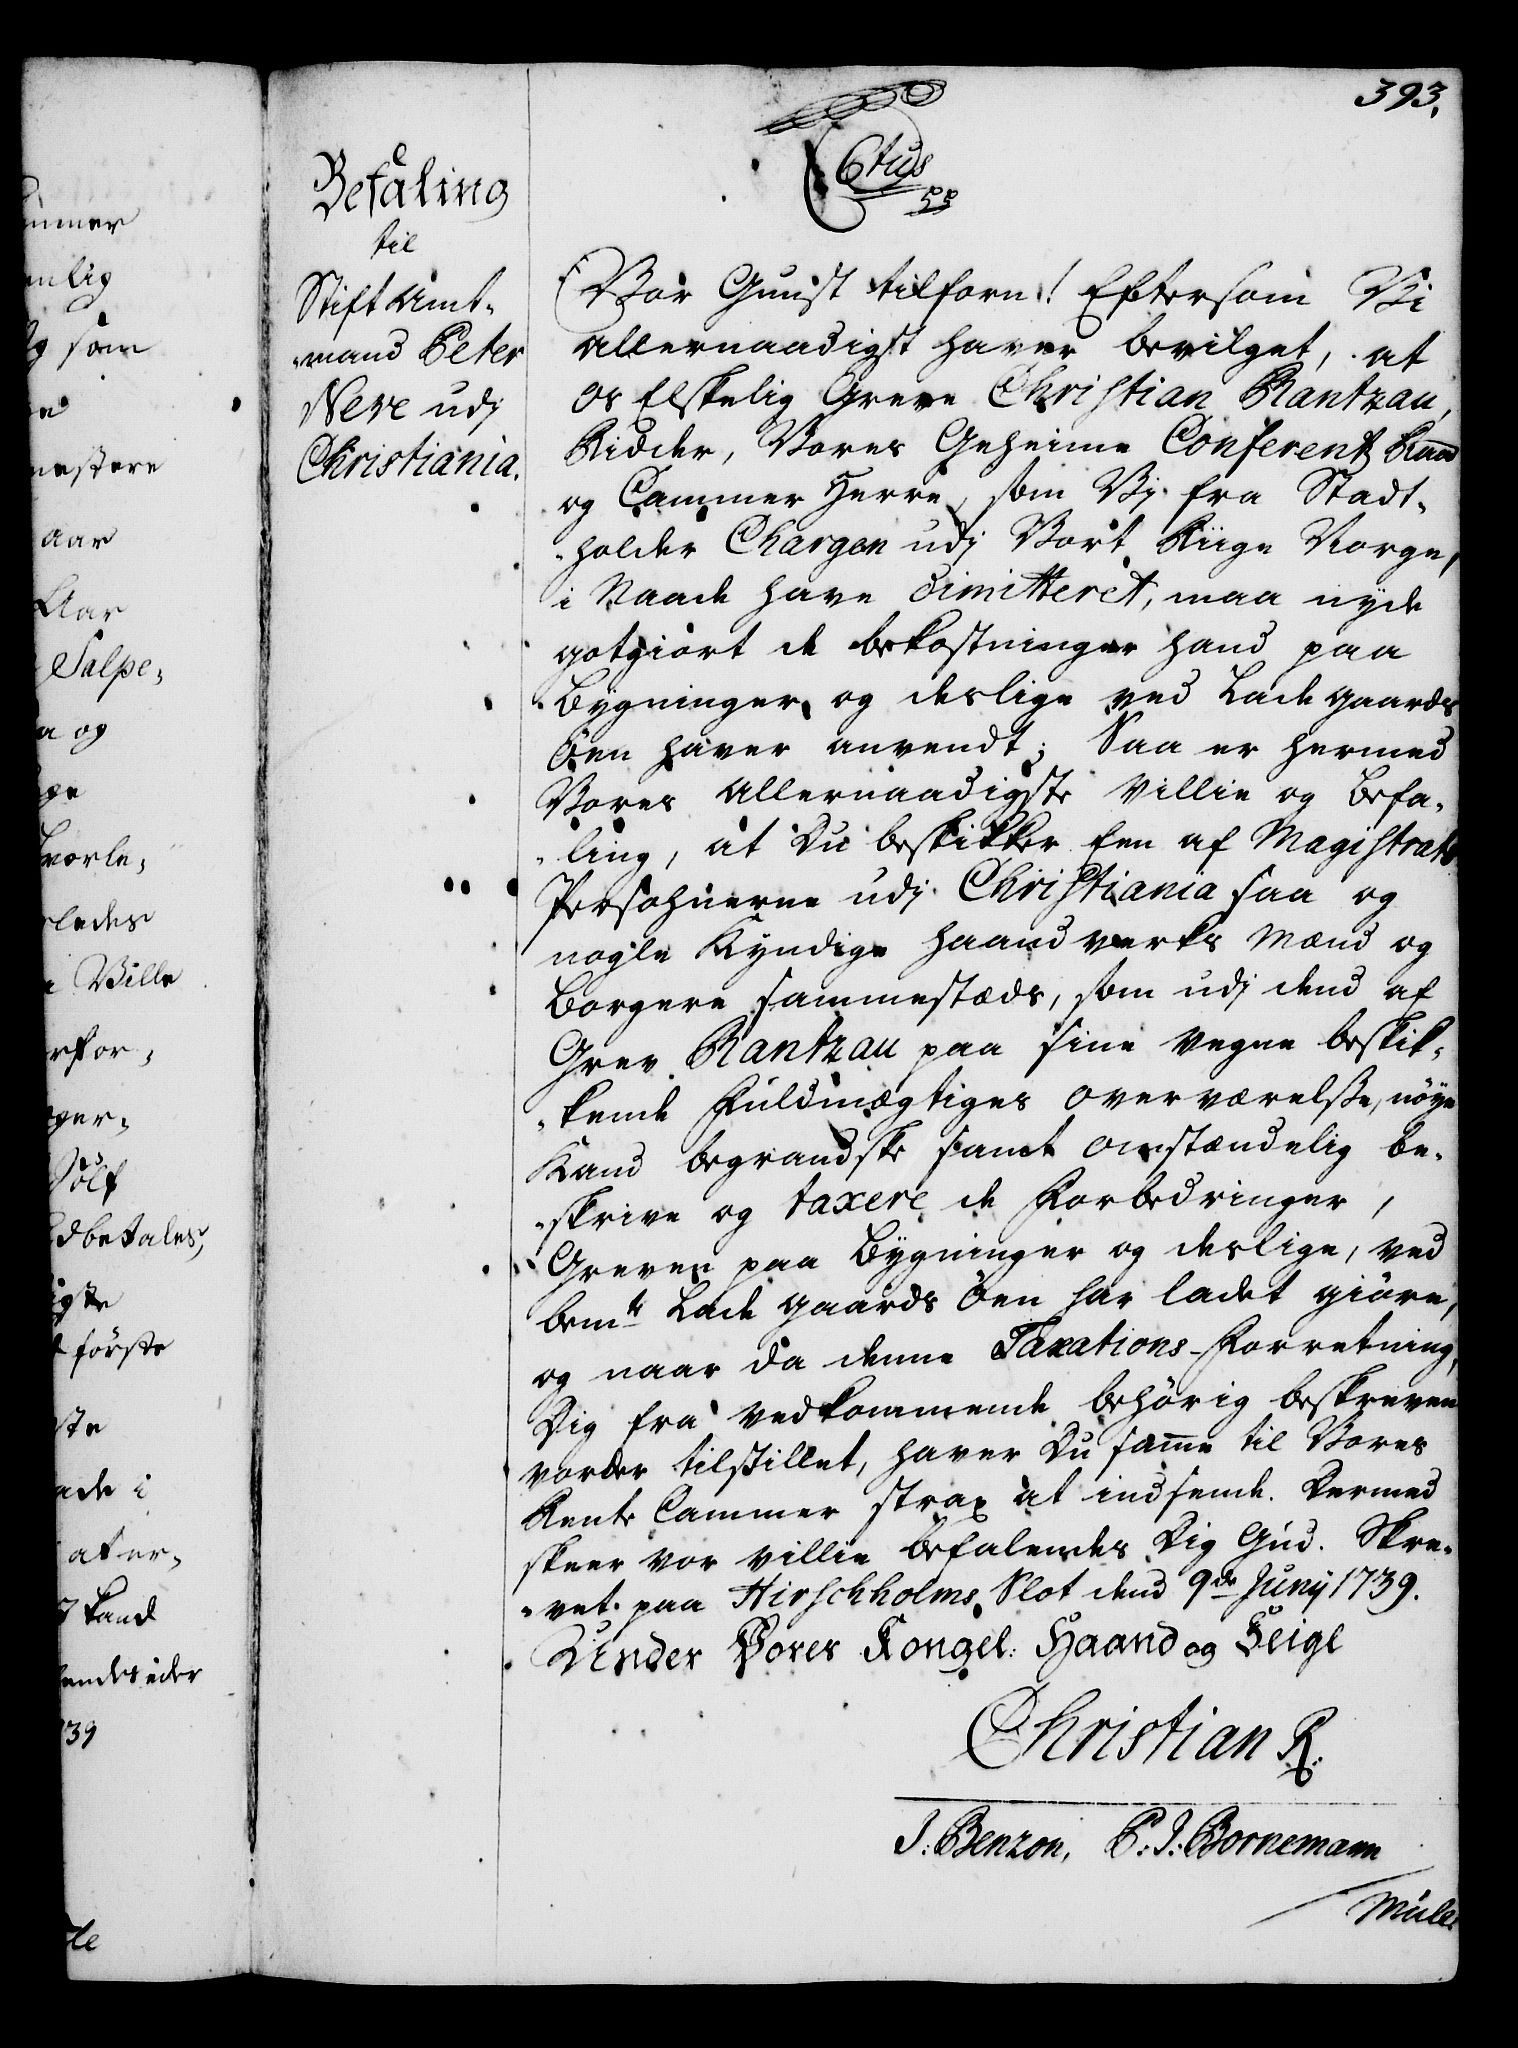 393.
C6tus
pp
Befaling
til
Stift Amt-
-mand Peter
Neve udj
Christiania.
Vor Gunst tilforn! Eftersom Vi
allernaadigst haver bevilget, at
os Elskelig Greve Christian Rantzau,
Ridder, Vores Geheime Conferentz Raad
og Cammer Herre, som Vj fra Stadt-
-holder Chargen udj Vort Riige Norge,
i Naade have dimitteret, maa nyde
gotgiort de bekostninger hand paa
Bygninger og deslige ved Ladegaards
Öen haver anvendt; Saa er hermed
Vores allernaadigste Villie og Befa-
-ling, at Du beskikker Een af Magistrats
Persohnerne udj Christiania saa og
nogle Kyndige Haandverks Mænd og
Borgere sammestæds, som udj dend af
Grev Rantzau paa sine Vegne beskik-
-kende Fuldmægtiges Overværelsse, nöye
Kand begrandske samt omstændelig be-
-skrive og taxere de Forbedringer,
Greven paa Bygninger og deslige, ved
bemte Lade gaards Öen har ladet giöre,
og naar da denne Taxations-Forretning,
Dig fra vedkommende behörig beskreven
vorder tilstillet, haver Du samme til Vores
Rente Cammer strax at indsende. Dermed
skeer vor villie Befalendes Dig Gud. Skre-
-vet paa Hirschholms Slot dend 9de Junij 1739.
Under Vores Kongel: Haand og Seigl
Christian R.
J: Benzon, P: J: Bornemann
Müller
ummer
mlig
som
nestere
aar
Aar
Salpe-
a og
hvorle-
rledes
Ville
Tolf
udbetales,
igste
förste
ste
ade i
at er-
kand
endes eder
739
de